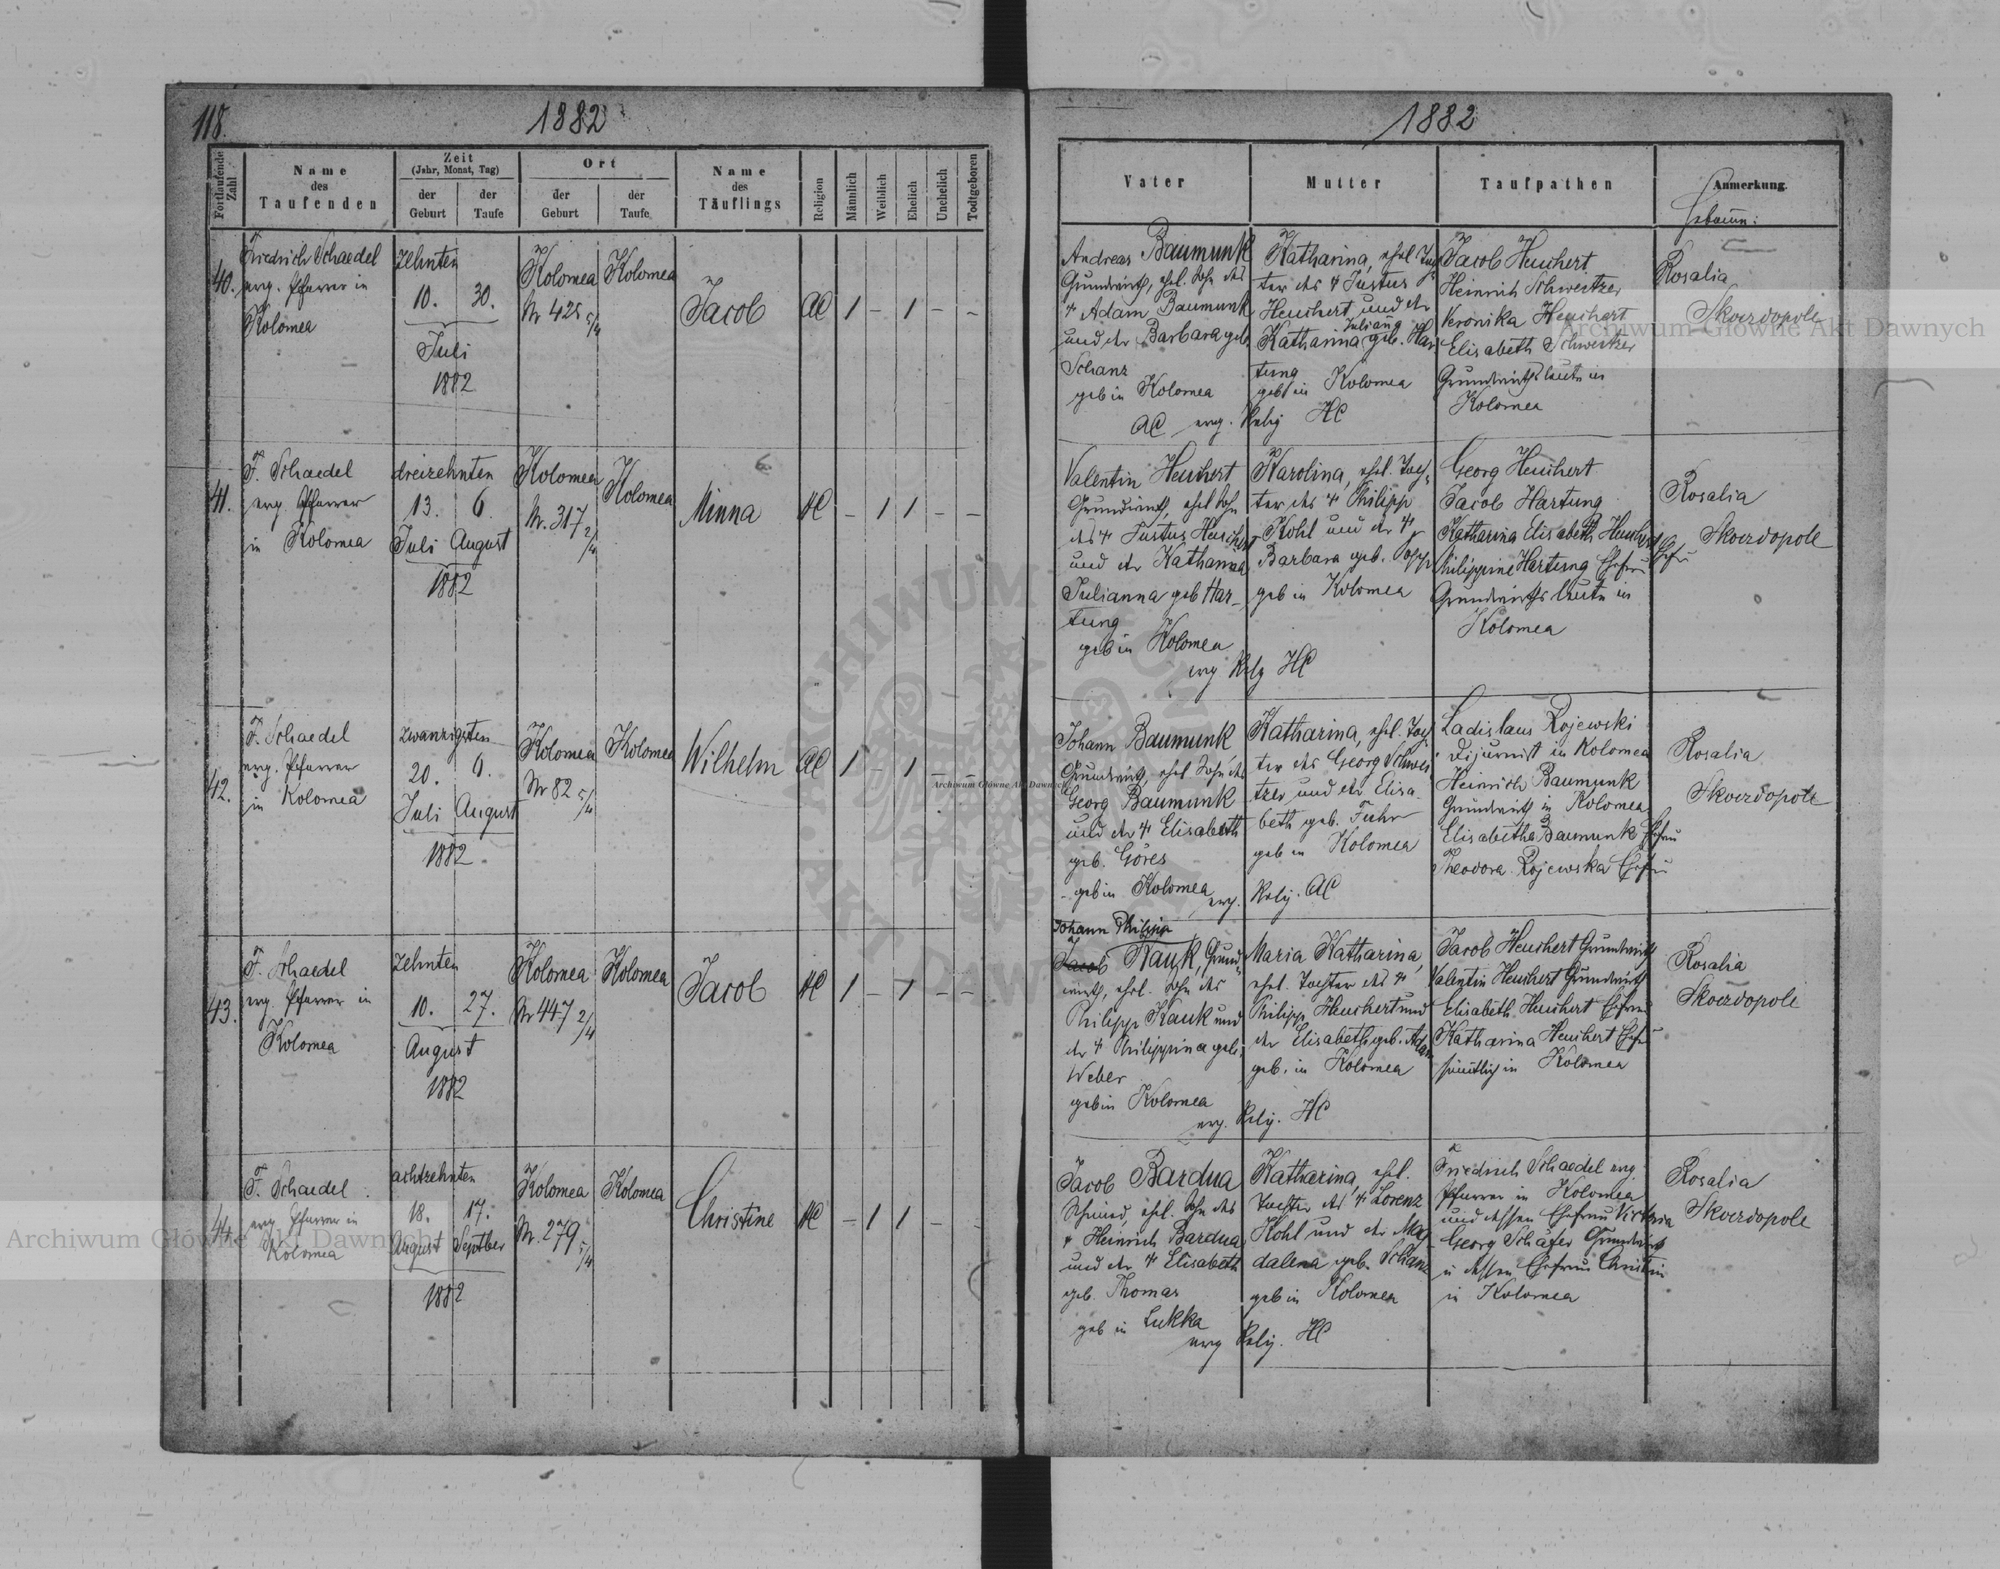 118.
1882
Fortlaufende Zahl
Name
des
Taufenden
Zeit
(Jahr, Monat, Tag)
der
Geburt
der
Taufe
Ort
der
Geburt
der
Taufe
Name
des
Täuflings
Religion
Männlich
Weiblich
Ehelich
Unehelich
Todtgeboren
40.
Friedrich Schaedel
evg. Pfarrer in
Kolomea
Zehnten
10. 30.
Juli
1882
Kolomea
Nr 425 5/4
Kolomea
Jacob
AC
1 – 1 – –
41.
F. Schaedel
evg. Pfarrer
in Kolomea
dreizehnten
13. 6.
Juli August
1882
Kolomea
Nr. 317 2/4
Kolomea
Minna
HC
– 1 1 – –
42.
F. Schaedel
evg. Pfarrer
in Kolomea
zwanzigsten
20. 6.
Juli August
1882.
Kolomea
Nr 82 5/4
Kolomea
Wilhelm
AC
1 – 1 – –
43.
F. Schaedel
evg. Pfarrer in
Kolomea
Zehnten
10. 27.
August
1882
Kolomea
Nr 447 2/4
Kolomea
Jacob
HC
1 – 1 – –
44.
F. Schaedel
evg. Pfarrer in
Kolomea
achtzehnten
18. 17.
August Septber
1882
Kolomea
Nr. 279 5/4
Kolomea
Christine
HC
– 1 1 – –
1882
Vater
Mutter
Taufpathen
Anmerkung.
Hebamme:
Andreas Baumunk
Grundwirth, ehel. Sohn des
† Adam Baumunk
und der Barbara geb.
Schanz
geb in Kolomea
AC evg. Relig HC
Katharina, ehel. Toch
ter des † Justus
Heuchert und der
Juliana
Katharina geb. Har
tung
geb in Kolomea
Jacob Heuchert
Heinrich Schweitzer
Veronika Heuchert
Elisabeth Schweitzer
Grundwirthsleute in
Kolomea
Rosalia
Skverdopole
Valentin Heuchert
Grundwirth, ehel Sohn
des † Justus Heuchert
und der Katharina
Julianna geb Har-
tung
geb in Kolomea
evg Relg HC
Karolina, ehel. Toch-
ter des † Philipp
Kohl und der †
Barbara geb. Popp
geb in Kolomea
Georg Heuchert
Jacob Hartung
Katharina Elisabeth Heuchert Ehefrau
Philippine Hartung Ehefrau
Grundwirthsleute in
Kolomea
Rosalia
Skverdopole
Johann Baumunk
Grundwirth, ehel Sohn des
Georg Baumunk
und der † Elisabeth
geb. Göres
geb in Kolomea evg. Relig. AC
Katharina, ehel. Toch
ter des Georg Schwei
tzer und der Elisa
beth geb. Fuhr
geb in Kolomea
Ladislaus Rojewski
Dijurnist in Kolomea
Heinrich Baumunk
Grundwirth in Kolomea
Elisabetha Baumunk Ehefrau
Theodora Rojewska Ehefrau
Rosalia
Skverdopole
Johann Philipp
Jacob Kauk, Grund-
wirth, ehel. Sohn des
Philipp Kauk und
der † Philippina geb.
Weber
geb in Kolomea
evg. Relig. HC
Maria Katharina,
ehel. Tochter des †
Philipp Heuchert und
der Elisabeth geb. Adam
geb. in Kolomea
Jacob Heuchert Grundwirth
Valentin Heuchert Grundwirth
Elisabeth Heuchert Ehefrau
Katharina Heuchert Ehefr
sämtlich in Kolomea
Rosalia
Skverdopole
Jacob Bardua
Schmied, ehel. Sohn des
† Heinrich Bardua
und der † Elisabeth
geb. Thomas
geb in Lukka
evg Relig. HC
Katharina, ehel.
Tochter des † Lorenz
Kohl und der Mag
dalena geb. Schanz
geb in Kolomea
Friedrich Schaedel evg.
Pfarrer in Kolomea
und dessen Ehefrau Victoria
Georg Schäfer Grundwirth
u dessen Ehefrau Christin
in Kolomea
Rosalia
Skverdopole
Archiwum Główne Akt Dawnych
Archiwum Główne Akt Dawnych
Archiwum Główne Akt Dawnych